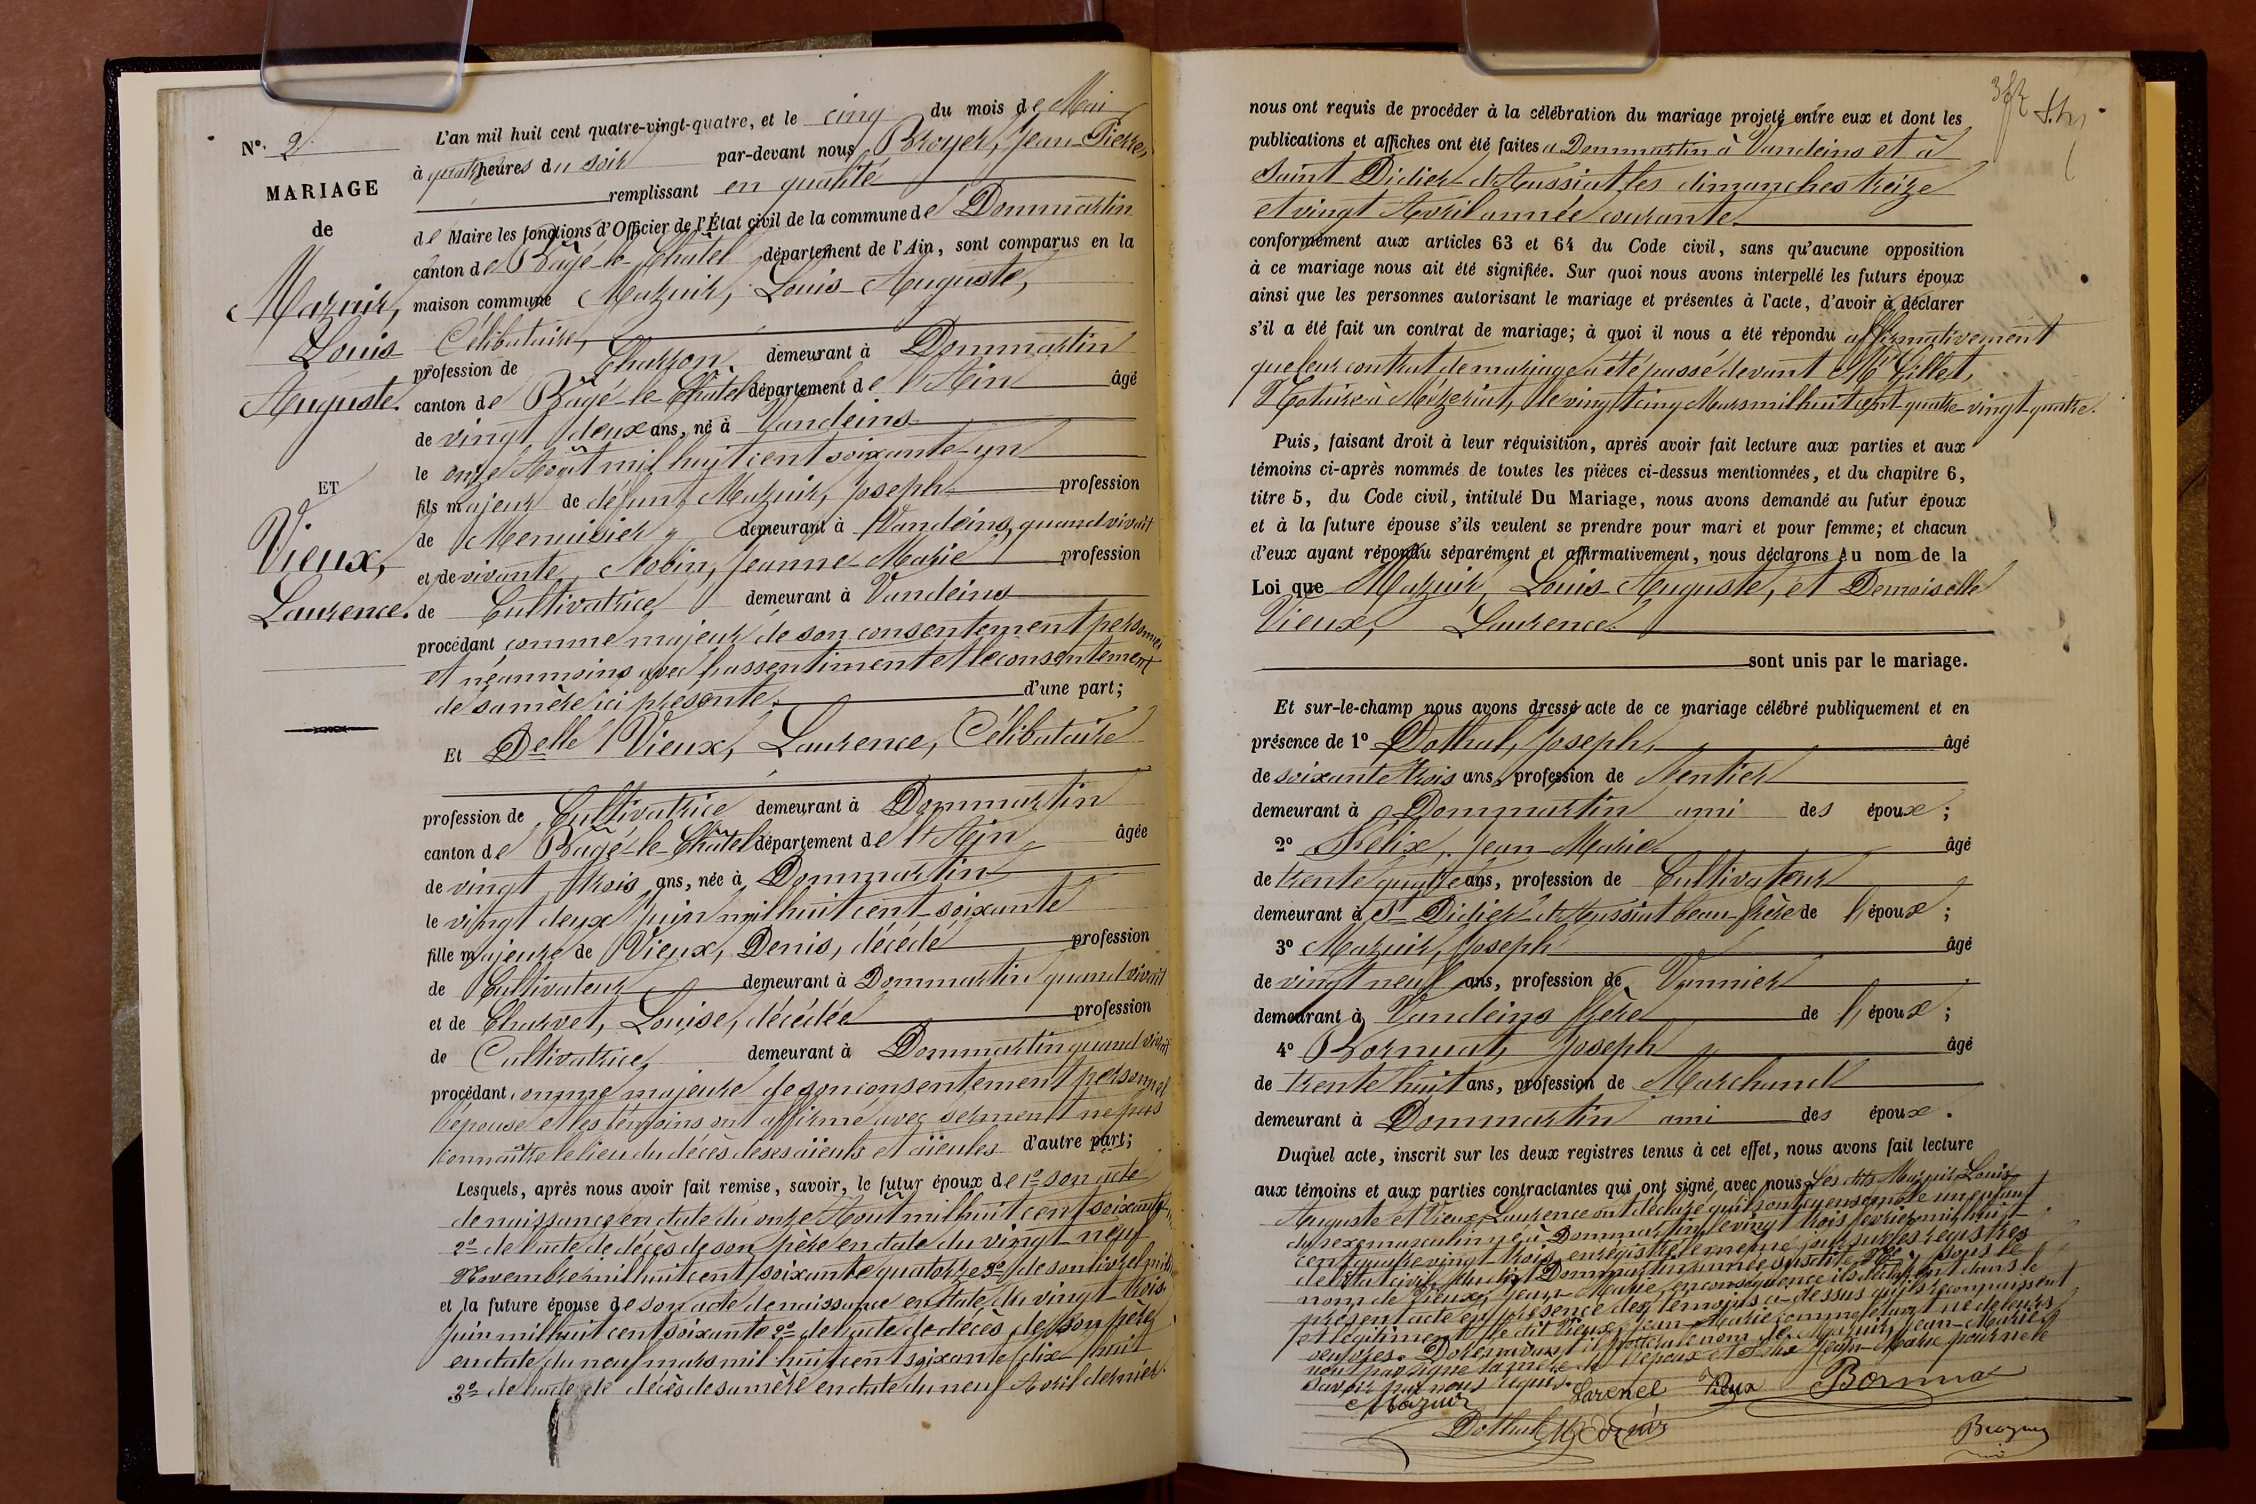 N° 2
MARIAGE
de
Mazuir,
Louis
Auguste.
ET
Vieux,
Laurence.
L'an mil huit cent quatre-vingt-quatre, et le cinq du mois de Mai
à quatre heures du soir par-devant nous Broyer, Jean-Pierre,
remplissant en qualité
de Maire les fonctions d'Officier de l'État civil de la commune de Dommartin
canton de Bâgé-le-Châtel département de l'Ain, sont comparus en la
maison commune Mazuir, Louis-Auguste,
Célibataire,
profession de Charron demeurant à Dommartin
canton de Bâgé-le-Châtel département de l'Ain âgé
de vingt deux ans, né à Vandeins
le onze Août mil huit cent soixante-un
fils majeur de défunt Mazuir, Joseph profession
de Menuisier demeurant à Vandeins, quand vivait
et de vivante Nobin, Jeanne-Marie profession
de Cultivatrice demeurant à Vandeins
procédant comme majeur de son consentement personnel
et néanmoins avec l'assentiment et le consentement
de sa mère ici présente. d'une part;
Et Delle Vieux, Laurence, Célibataire
profession de Cultivatrice demeurant à Dommartin
canton de Bâgé-le-Châtel département de l'Ain âgée
de vingt trois ans, née à Dommartin
le vingt deux Juin mil huit cent soixante
fille majeure de Vieux, Denis, décédé profession
de Cultivateur demeurant à Dommartin quand vivait
et de Charvet, Louise, décédée profession
de Cultivatrice, demeurant à Dommartin quand vivait
procédant comme majeure de son consentement personnel
l'épouse et les témoins ont affirmé avec serment ne pas
connaître le lieu du décès de ses aïeuls et aïeules d'autre part;
Lesquels, après nous avoir fait remise, savoir, le futur époux de 1° son acte
de naissance en date du onze Août mil huit cent soixante-un
2° de l'acte de décès de son père en date du vingt neuf
Novembre mil huit cent soixante quatorze 3° de son livret
et la future épouse de son acte de naissance en date du vingt trois
Juin mil huit cent soixante 2° de l'acte de décès de son père
en date du neuf mars mil huit cent soixante dix huit
3° de l'acte de décès de sa mère en date du neuf Avril dernier.
nous ont requis de procéder à la célébration du mariage projeté entre eux et dont les
publications et affiches ont été faites à Dommartin à Vandeins et à
Saint Didier d'Aussiat les dimanches treize
et vingt Avril année courante
conformément aux articles 63 et 64 du Code civil, sans qu'aucune opposition
à ce mariage nous ait été signifiée. Sur quoi nous avons interpellé les futurs époux
ainsi que les personnes autorisant le mariage et présentes à l'acte, d'avoir à déclarer
s'il a été fait un contrat de mariage; à quoi il nous a été répondu affirmativement
que leur contrat de mariage a été passé devant Me Gillet,
Notaire à Mézériat, le vingt cinq Mars mil huit cent quatre-vingt quatre.
Puis, faisant droit à leur réquisition, après avoir fait lecture aux parties et aux
témoins ci-après nommés de toutes les pièces ci-dessus mentionnées, et du chapitre 6,
titre 5, du Code civil, intitulé Du Mariage, nous avons demandé au futur époux
et à la future épouse s'ils veulent se prendre pour mari et pour femme; et chacun
d'eux ayant répondu séparément et affirmativement, nous déclarons au nom de la
Loi que Mazuir, Louis-Auguste, et Demoiselle
Vieux, Laurence
sont unis par le mariage.
Et sur-le-champ nous avons dressé acte de ce mariage célébré publiquement et en
présence de 1° Dothal, Joseph, âgé
de soixante trois ans, profession de Rentier
demeurant à Dommartin ami des époux;
2° Félix, Jean-Marie âgé
de trente quatre ans, profession de Cultivateur
demeurant à St Didier d'Aussiat beau-frère de l'époux;
3° Mazuir, Joseph âgé
de vingt neuf ans, profession de Vannier
demeurant à Vandeins frère de l'époux;
4° Bornuat, Joseph âgé
de trente huit ans, profession de Marchand
demeurant à Dommartin ami des époux.
Duquel acte, inscrit sur les deux registres tenus à cet effet, nous avons fait lecture
aux témoins et aux parties contractantes qui ont signé avec nous Les dits Mazuir, Louis
Auguste et Vieux, Laurence ont déclaré qu'ils ont eu ensemble un enfant
du sexe masculin né à Dommartin le vingt trois février mil huit
cent quatre vingt trois, enregistré le même jour sur les registres
de l'état civil du dit Dommartin année susdite sous le
nom de Vieux, Jean-Marie, en conséquence ils déclarent dans le
présent acte en présence des témoins ci-dessus qu'ils reconnaissent
et légitiment le dit Vieux, Jean-Marie comme étant né de leurs
œuvres. le nom de Mazuir, Jean-Marie
non pas signé la mère de l'époux et Félix Jean-Marie pour ne le
savoir
Mazuir Laurence Vieux Bornuat
Dothal
Broyer